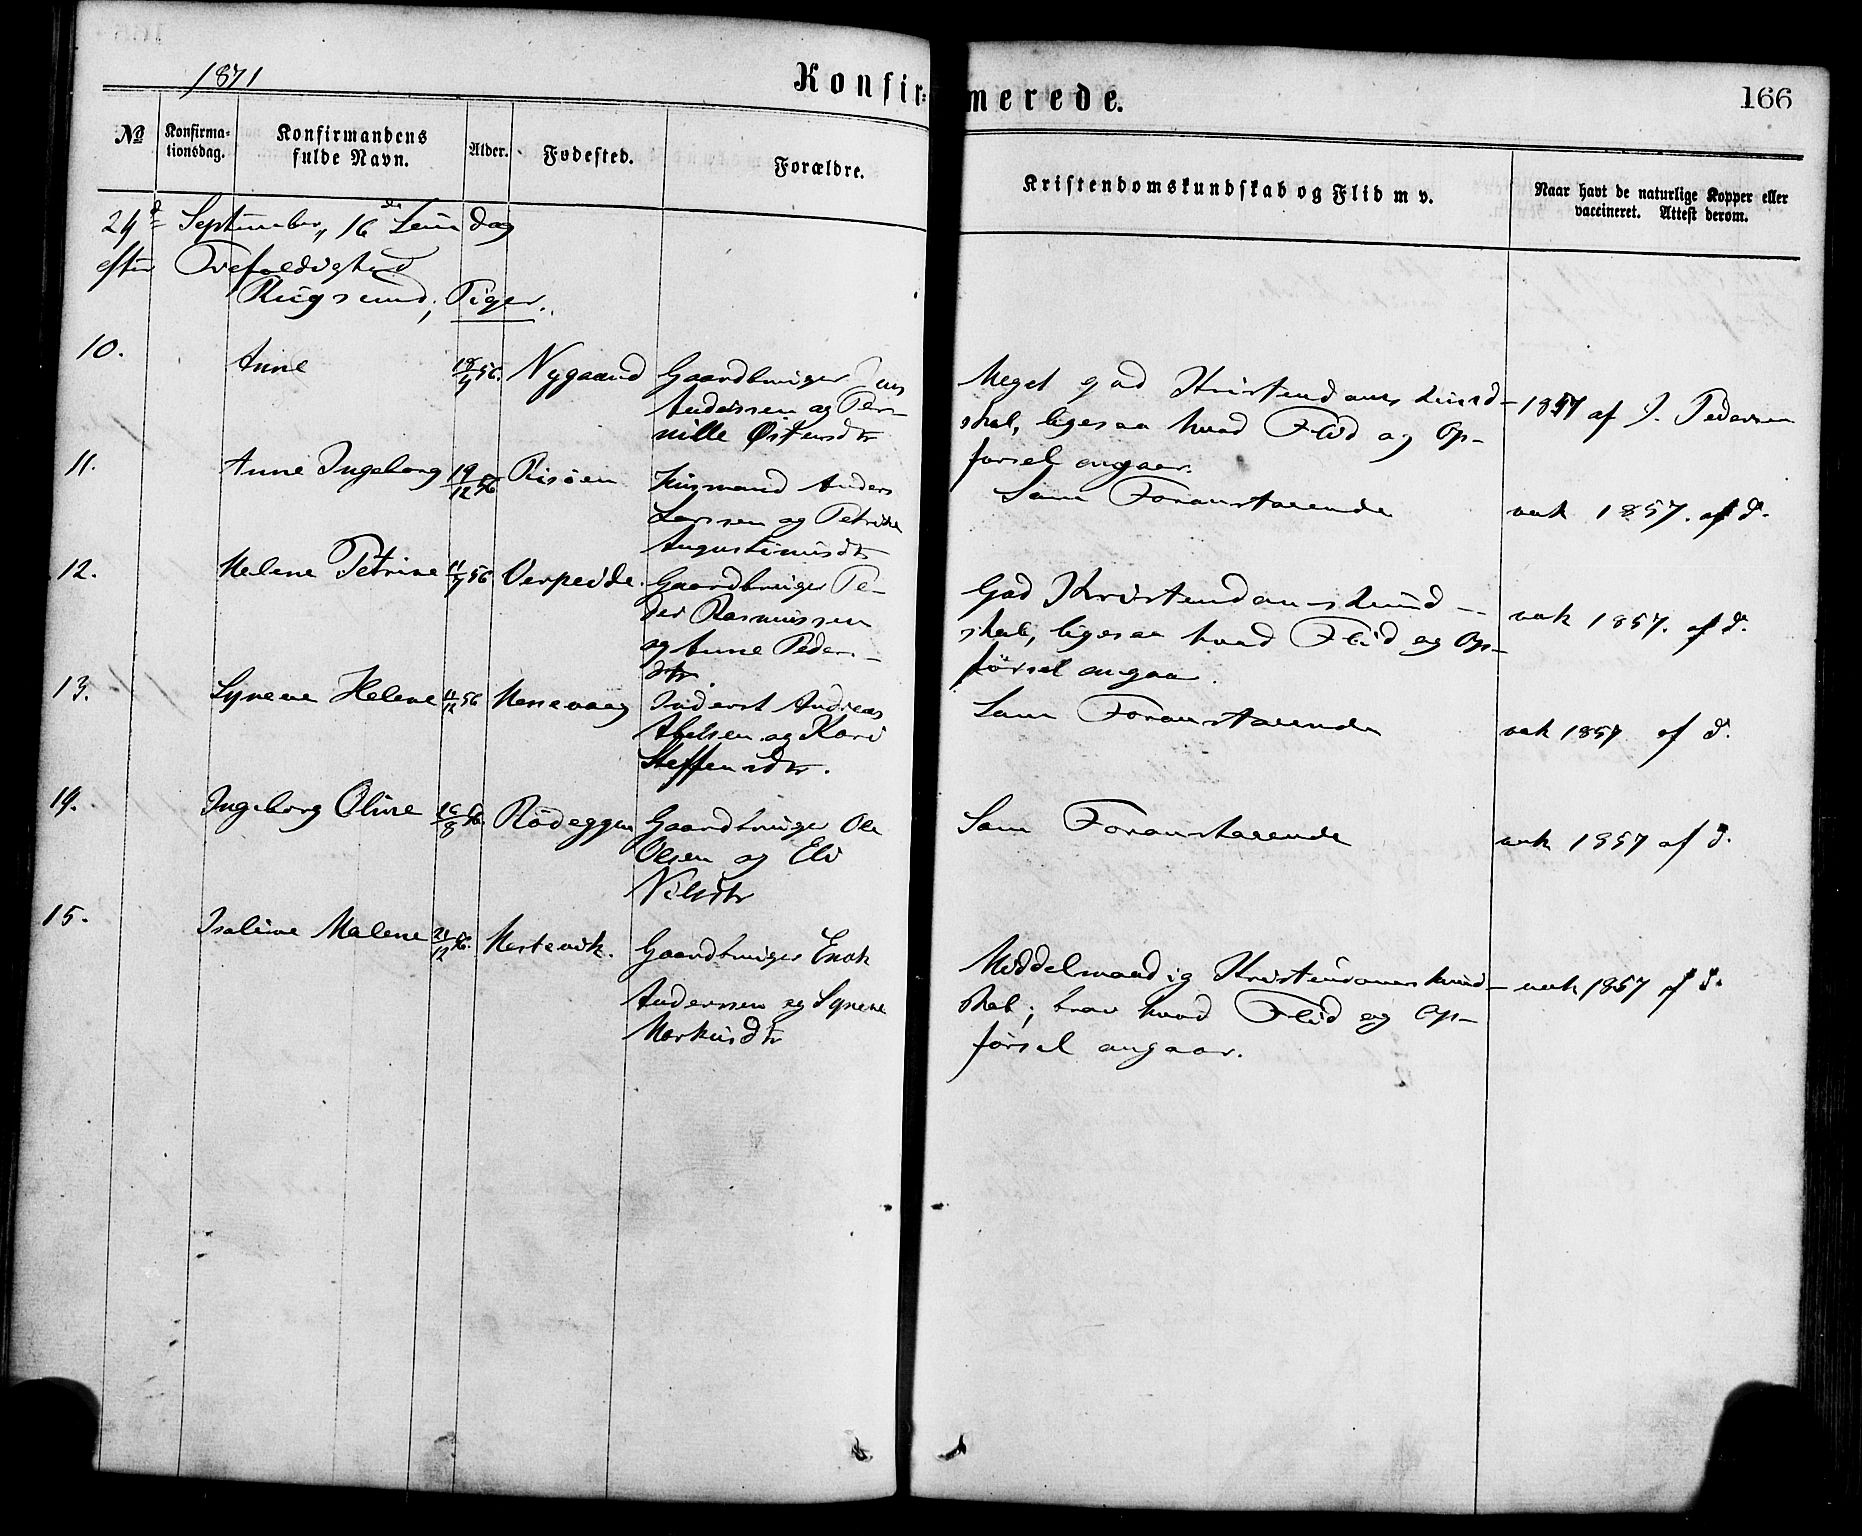 1871
Konfirmerede.
166
No
Konfirma-
tionsdag.
Konfirmandens
fulde Navn.
Alder.
Fødested.
Forældre.
Kristendomskundskab og Flid m v.
Naar havt de naturlige Kopper eller
vaccineret. Attest derom.
24de September, 16de Søndag
efter Trefoldighed
Rugsund, Piger.
10. Anne 56. Nygaard Gaardbruger Jens
Anderssen og Per-
nille Østensdtr
Meget god Kristendomskund-
skab, ligesaa hvad Flid og Op-
førsel angaar.
1857 af J. Pedersen
11. Anne Ingeborg 19/12 56 Risöen Husmand Anders
Larssen og Petrine
Augustinusdtr
Som Foranstaaende
vak 1857. af d.
12. Helene Petrine 56 Verpeide. Gaardbruger Pe-
der Rasmussen
og Anne Peders-
dtr.
God Kristendomskund-
skab, ligesaa hvad Flid og Op-
førsel angaar.
vak 1857. af d.
13. Synneve Helene 56 Inderst Andreas
Abelsen og Kari
Steffensdtr.
Som Foranstaaende
vak 1857 af d.
14. Ingeborg Oline 56. Rödeggen Gaardbruger Ole
Olsen og Eli
Nilsdtr
Som Foranstaaende
vak 1857 af d.
15. Isaline Malene 56. Hestevik. Gaardbruger Enok
Anderssen og Synneve
Markusdtr
Middelmaadig Kristendomskund-
skab; brav hvad Flid og Op-
førsel angaar.
vak 1857 af d.